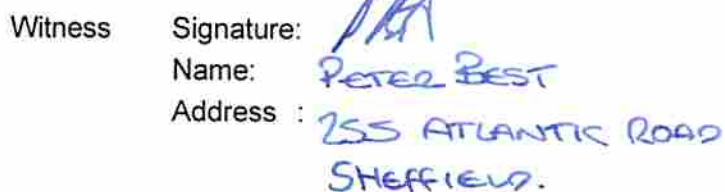 Witness Signature:
Name: PETER BEST
Address : 255 ATLANTIC ROAD
SHEFFIELD.